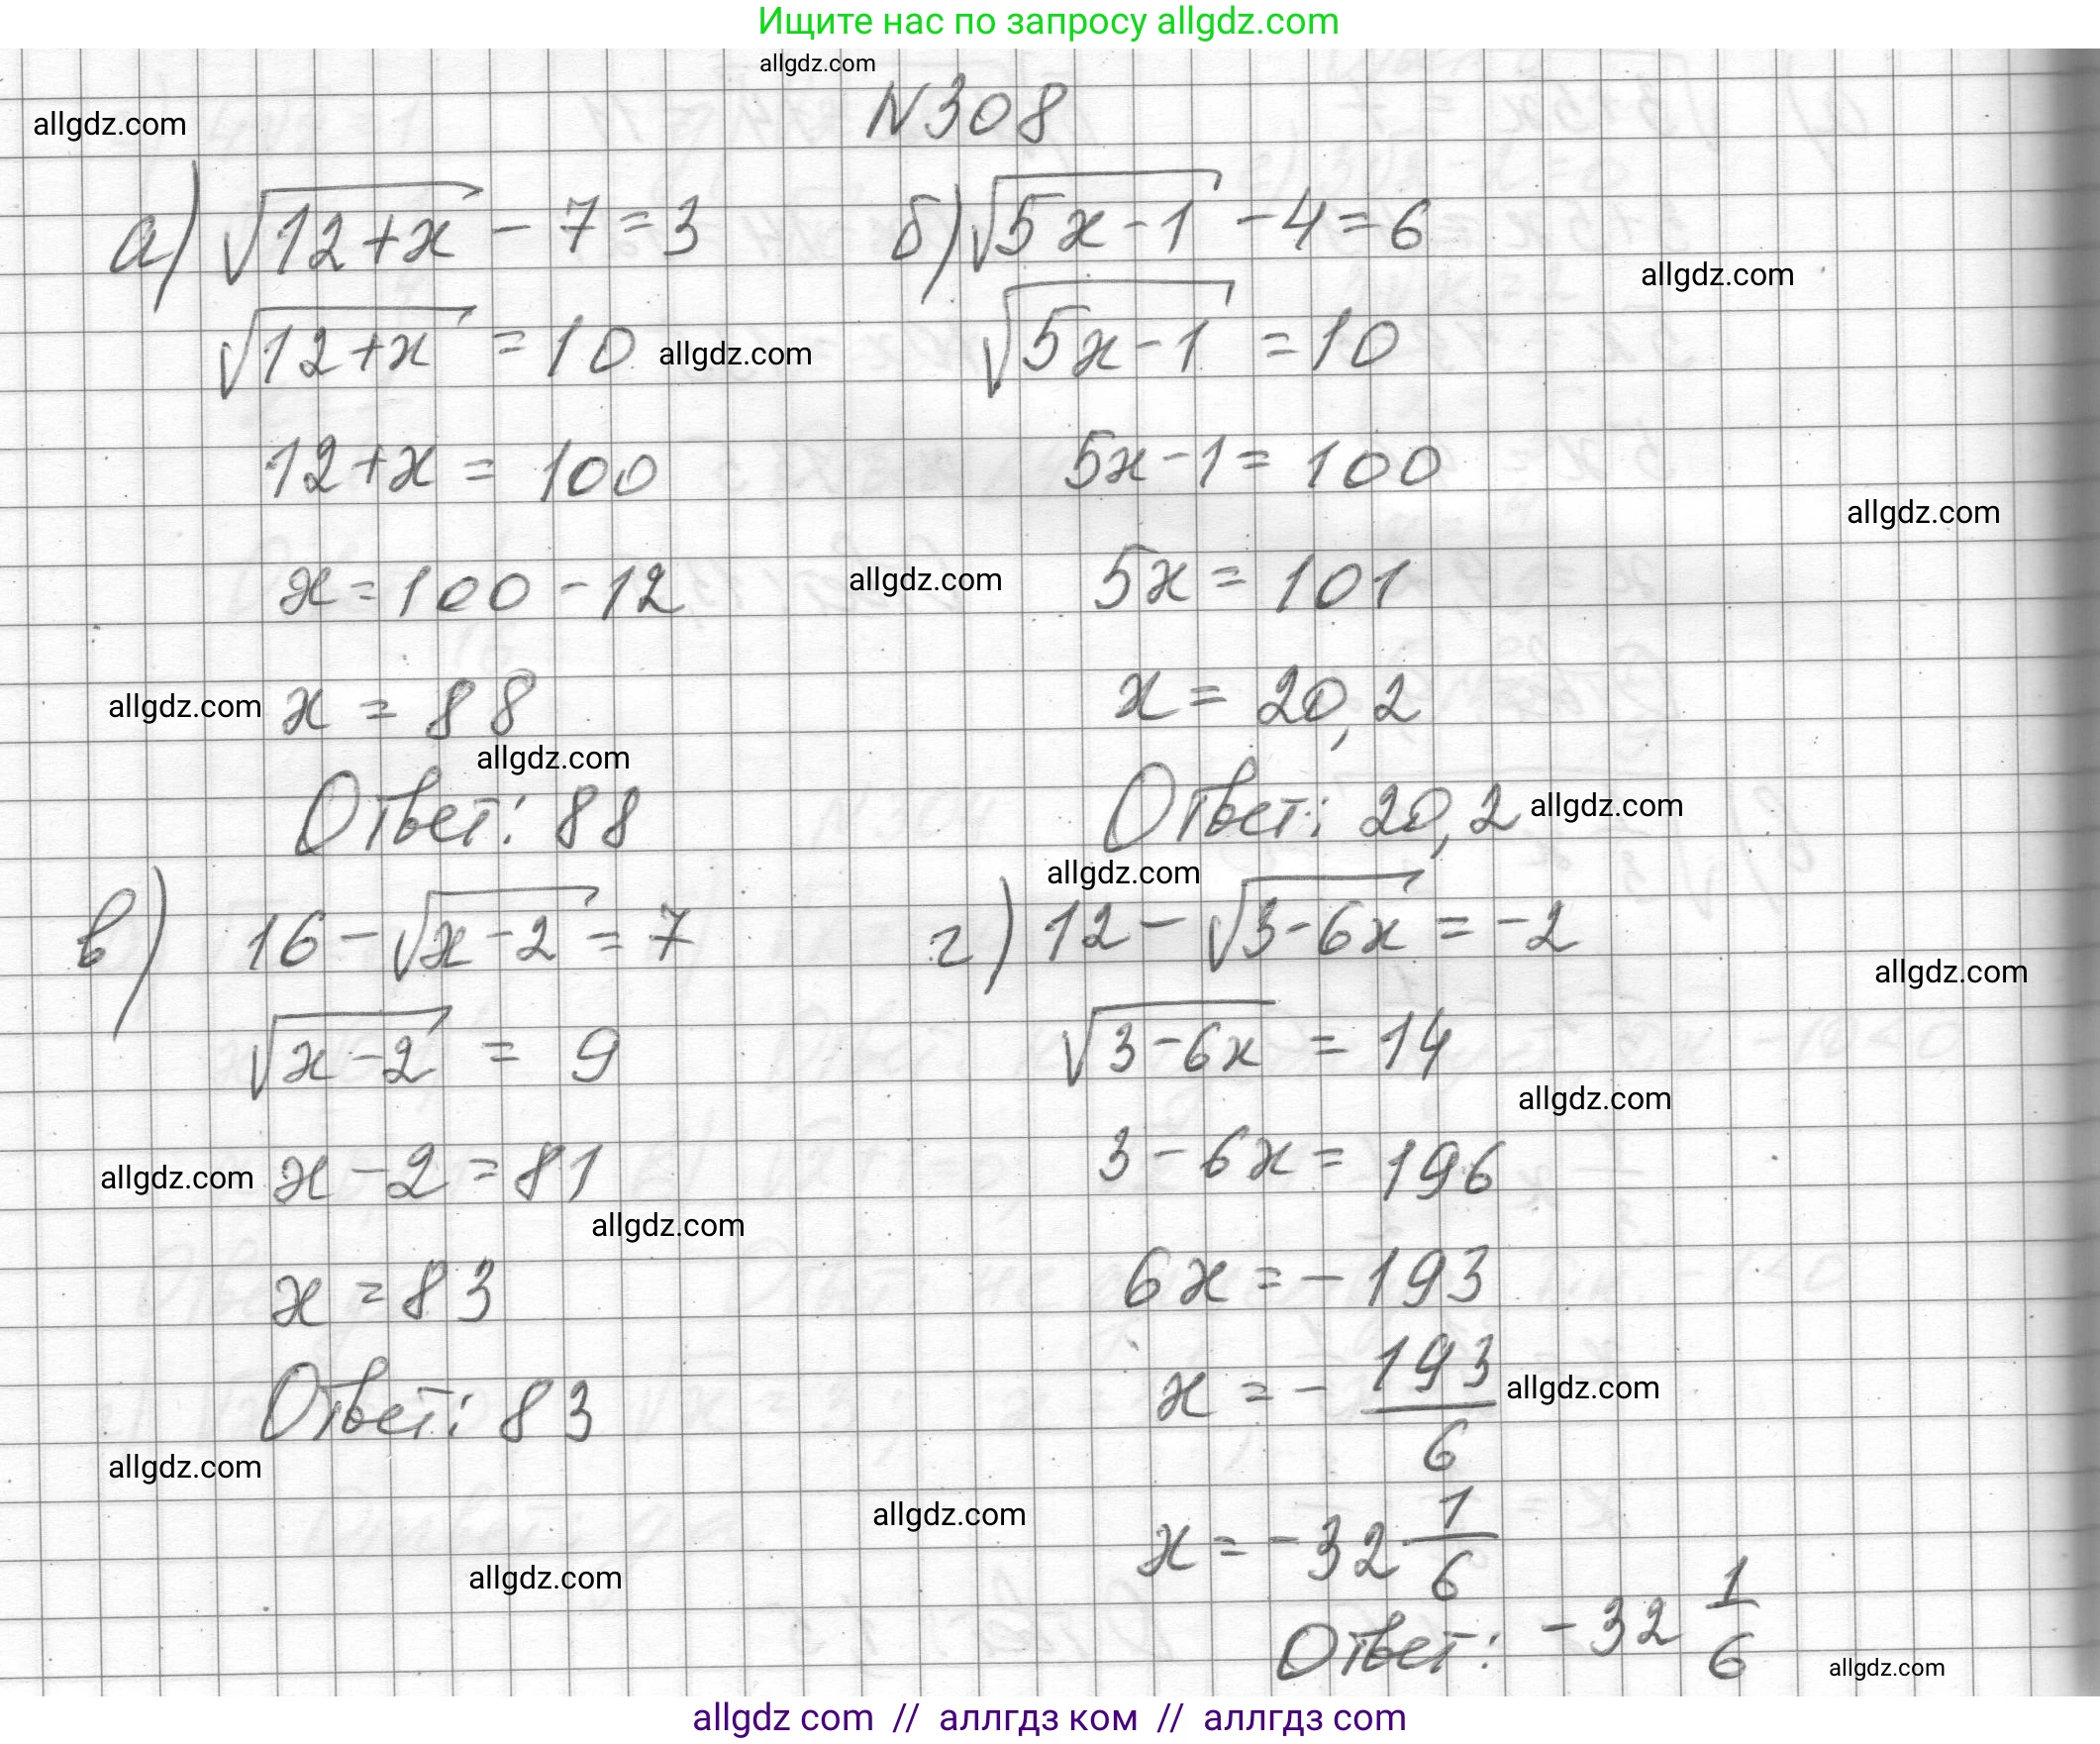 Ищите нас по запросу allgdz.com
allgdz.com
N308
allgdz.com
а) √(12+x) - 7 = 3
√(12+x) = 10
allgdz.com
12+x = 100
x = 100 - 12
allgdz.com
x = 88
allgdz.com
Ответ: 88
б) √(5x-1) - 4 = 6
allgdz.com
√(5x-1) = 10
5x-1 = 100
allgdz.com
allgdz.com
5x = 101
x = 20,2
Ответ: 20,2
allgdz.com
в) 16 - √(x-2) = 7
√(x-2) = 9
allgdz.com
x - 2 = 81
allgdz.com
x = 83
Ответ: 83
allgdz.com
allgdz.com
allgdz.com
г) 12 - √(3-6x) = -2
allgdz.com
√(3-6x) = 14
allgdz.com
3 - 6x = 196
6x = - 193
x = - 193/6
allgdz.com
allgdz.com
x = - 32 1/6
Ответ: - 32 1/6
allgdz.com
allgdz com // аллгдз ком // аллгдз com